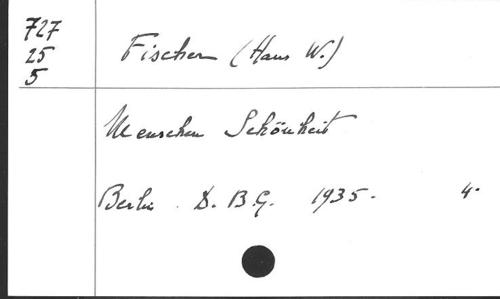 727
25
5
Fischer (Hans W.)
Menschen Schönheit
Berlin. D. B. G. 1935. 4.